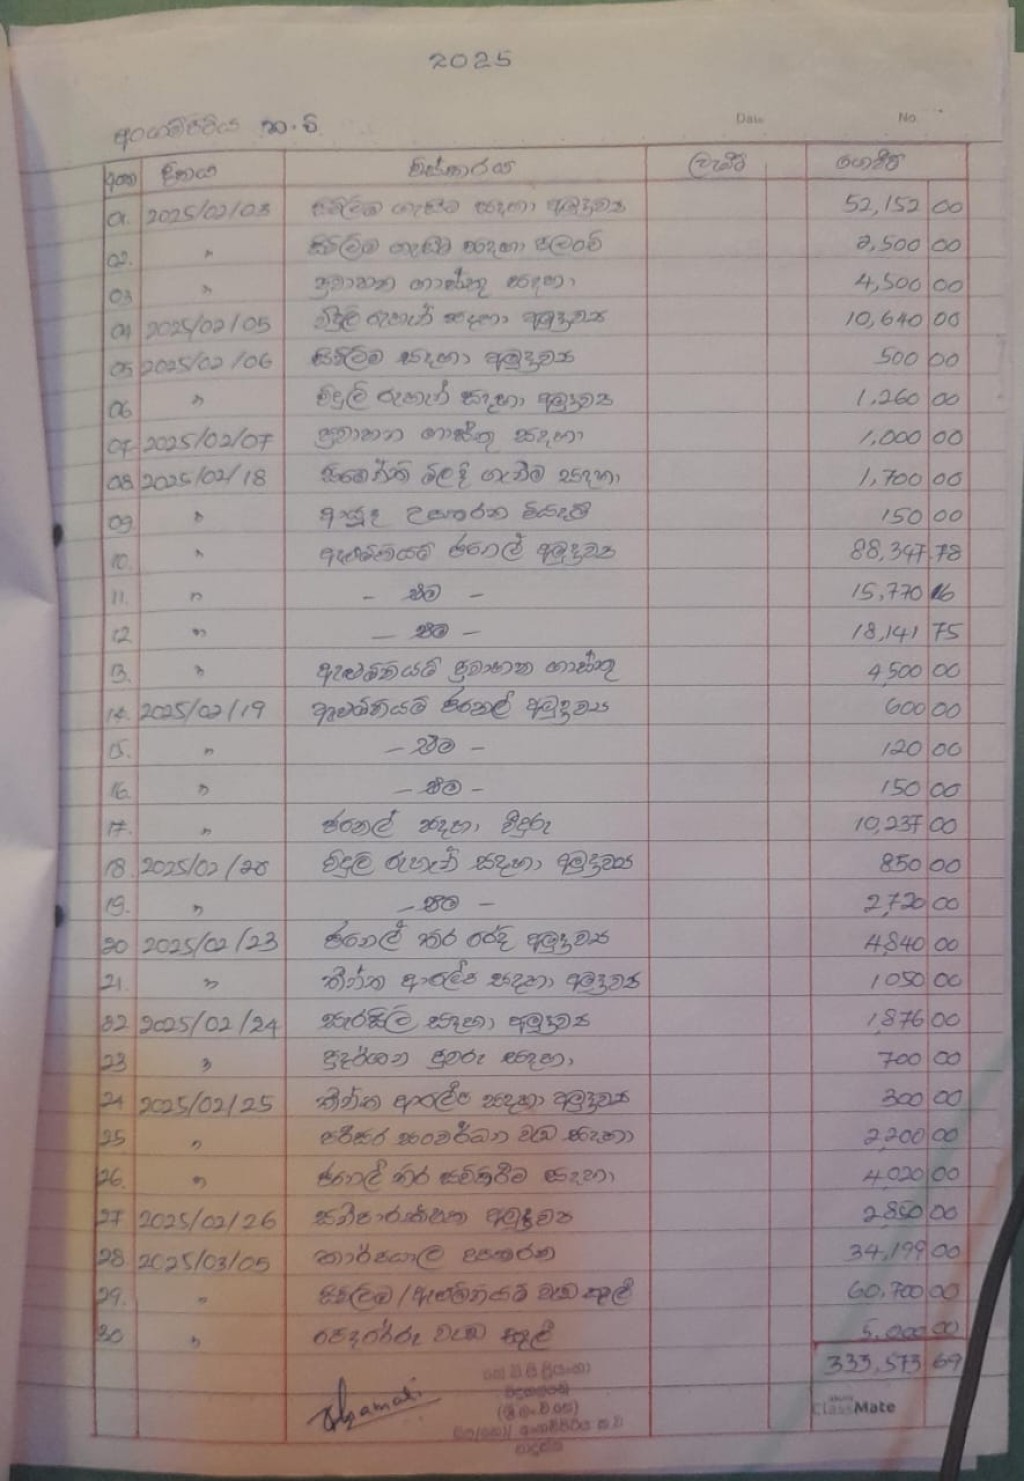 2025
අංගම්පිටිය ක.වි
Date No
අංක දිනය විස්තරය ලැබීම් ගෙවීම්
01. 2025/02/03 සිවිලිම ගැසීම සඳහා අමුද්‍රව්‍ය 52,152 00
02. " සිවිලිම ගැසීම සඳහා පලංචි 2,500 00
03 " ප්‍රවාහන ගාස්තු සඳහා 4,500 00
04 2025/02/05 විදුලි රැහැන් සඳහා අමුද්‍රව්‍ය 10,640 00
05 2025/02/06 සිවිලිම සඳහා අමුද්‍රව්‍ය 500 00
06 " විදුලි රැහැන් සඳහා අමුද්‍රව්‍ය 1,260 00
07 2025/02/07 ප්‍රවාහන ගාස්තු සඳහා 1,000 00
08 2025/02/18 සිමෙන්ති මිලදී ගැනීම සඳහා 1,700 00
09 " උපකරන වියදම් 150 00
10. " ඇලුමිනියම් ජනෙල් අමුද්‍රව්‍ය 88,347.78
11. " - එම - 15,770 16
12 " - එම - 18,141 75
13. " ඇලුමිනියම් ප්‍රවාහන ගාස්තු 4,500 00
14. 2025/02/19 ඇලුමිනියම් ජනෙල් අමුද්‍රව්‍ය 600 00
15. " - එම - 120 00
16. " - එම - 150 00
17. " ජනෙල් සඳහා වීදුරු 10,237 00
18. 2025/02/20 විදුලි රැහැන් සඳහා අමුද්‍රව්‍ය 850 00
19. " - එම - 2,720 00
20 2025/02/23 ජනෙල් තිර රෙදි අමුද්‍රව්‍ය 4,840 00
21. " තීන්ත ආලේප සඳහා අමුද්‍රව්‍ය 1050 00
22 2025/02/24 සැරසිලි සඳහා අමුද්‍රව්‍ය 1,876 00
23 " ප්‍රදර්ශන පුවරු සඳහා 700 00
24 2025/02/25 තීන්ත ආලේප සඳහා අමුද්‍රව්‍ය 300 00
25 " පරිසර සංවර්ධන වැඩ සඳහා 2,200 00
26. " ජනෙල් තිර සම්කිරීම සඳහා 4,020 00
27 2025/02/26 සනීපාරක්ෂක අමුද්‍රව්‍ය 00
28 2025/03/05 කාර්යාල උපකරන 34,199 00
29. " සිවිලිම/ඇලුමිනියම් වැඩ කුලී 60,700 00
30 " පෙදරේරු වැඩ කුලී 5,000 00
333,573 69
ClassMate